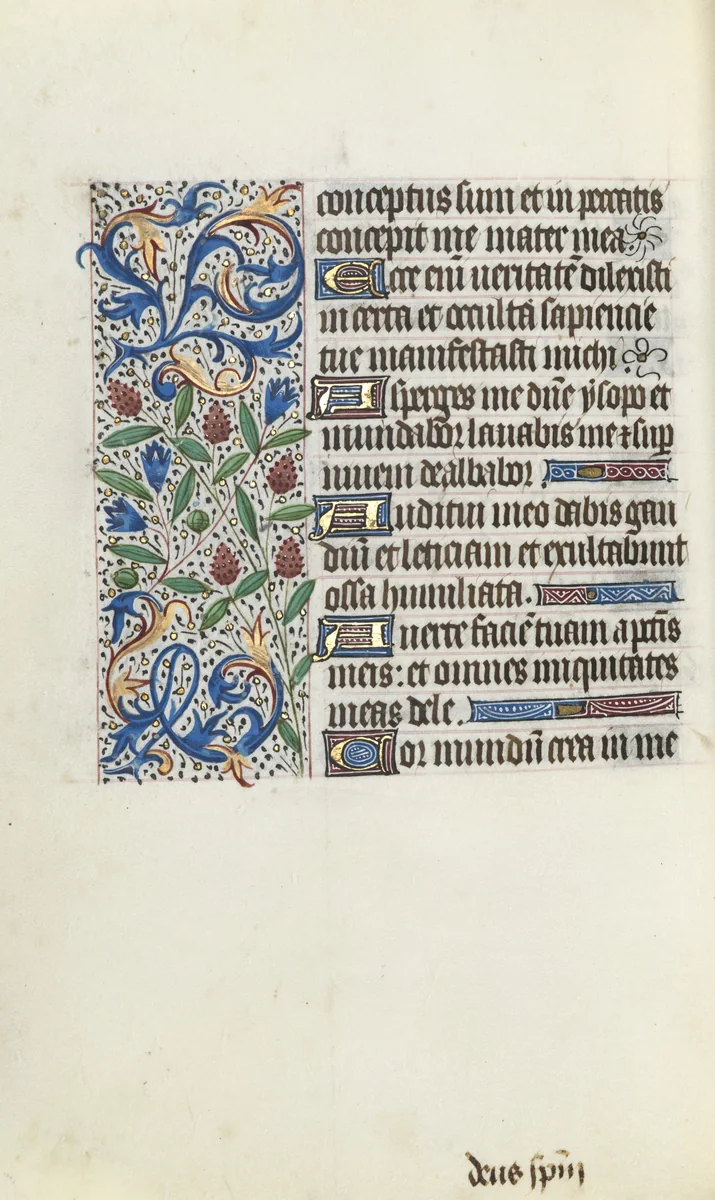 conceptus sum et in peccatis
concepit me mater mea
Ecce eni͂ veritate͂ dilexisti
incerta et occulta sapiencie
tue manifestasti michi
Asperges me dn͂e ysopo et
mundabor lavabis me ⁊ sup
nivem dealbabor
Auditui meo dabis gau
diu͂ et leticiam et exultabunt
ossa humiliata.
Averte facie͂ tuam a pcc͂tis
meis: et omnes iniquitates
meas dele.
Cor mundu͂ crea in me
deus spm͂